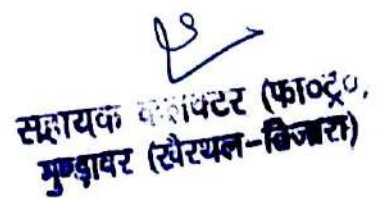 सहायक कलक्टर (फा०ट्र०,
मुण्डावर (खैरथल-तिजारा)